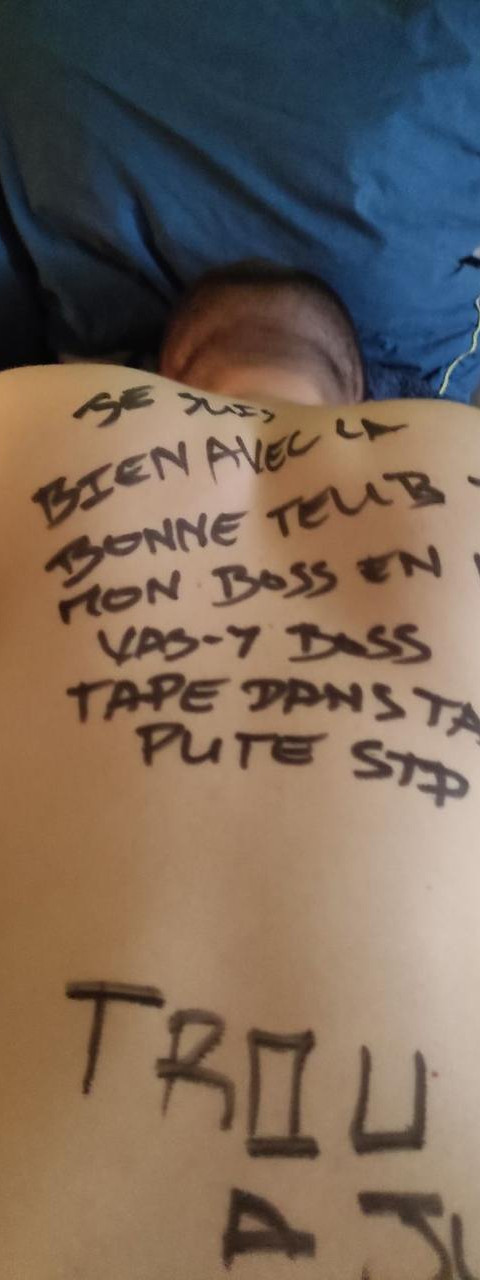 JE SUIS
BIEN AVEC LA
BONNE TEUB
MON BOSS EN
VAS-Y BOSS
TAPE DANS TA
PUTE STP
TROU
A